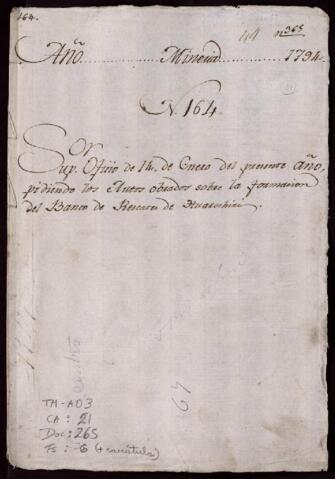 164.
44 nº365
Año. Mineria. 1794.
N. 164
Sor
Sup. Oficio de 14. de Enero del presente año,
pidiendo los Autos obrados sobre la formacion
del Banco de Rescates de Huarochiri.
67
TM-A03
CA: 21
Doc: 265
Fs: 6 (+ carátula)